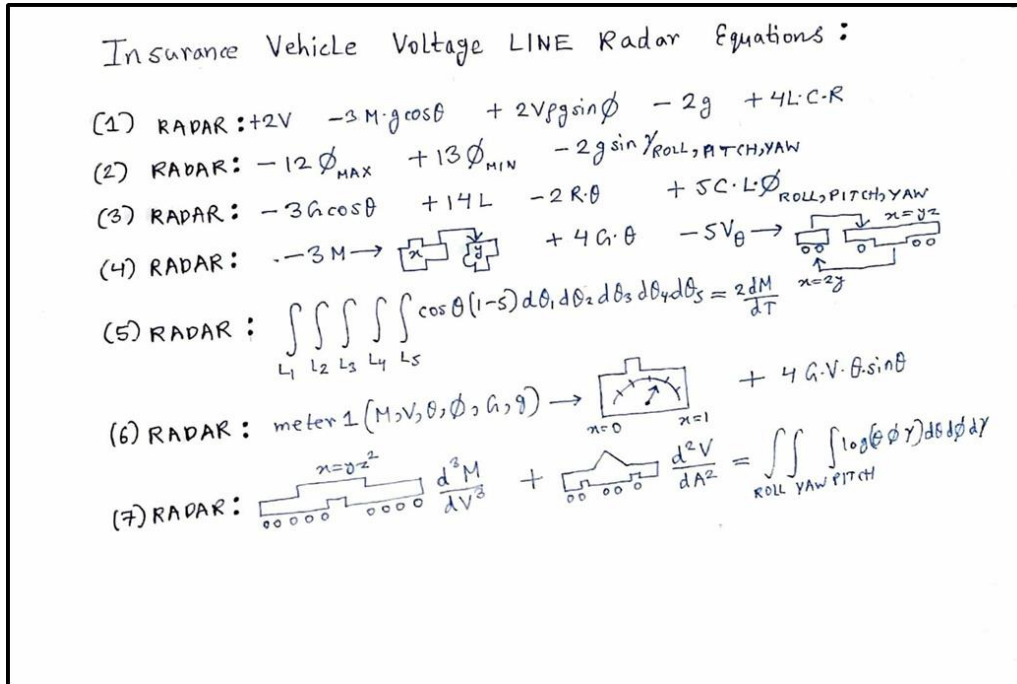 Insurance Vehicle Voltage LINE Radar Equations:
(1) RADAR: +2V -3M·gcosθ + 2Vρgsinφ - 2g + 4L·C·R
(2) RADAR: -12 φMAX +13 φMIN - 2g sin γROLL, PITCH, YAW
(3) RADAR: -3Gcosθ +14L -2R·θ + 5C·L·φROLL, PITCH, YAW
(4) RADAR: -3M→ x y + 4G·θ -5Vθ→ x=yz x=2y
(5) RADAR: ∫∫∫∫∫ cosθ(1-5)dθ₁dθ₂dθ₃dθ₄dθ₅ = 2dM/dT
L₁ L₂ L₃ L₄ L₅
(6) RADAR: meter 1 (M,V,θ,φ,G,g) → x=0 x=1 + 4G·V·θ·sinθ
(7) RADAR: x=yz² d³M/dV³ + d²V/dA² = ∫∫∫log(θφγ)dθdφdγ
ROLL YAW PITCH